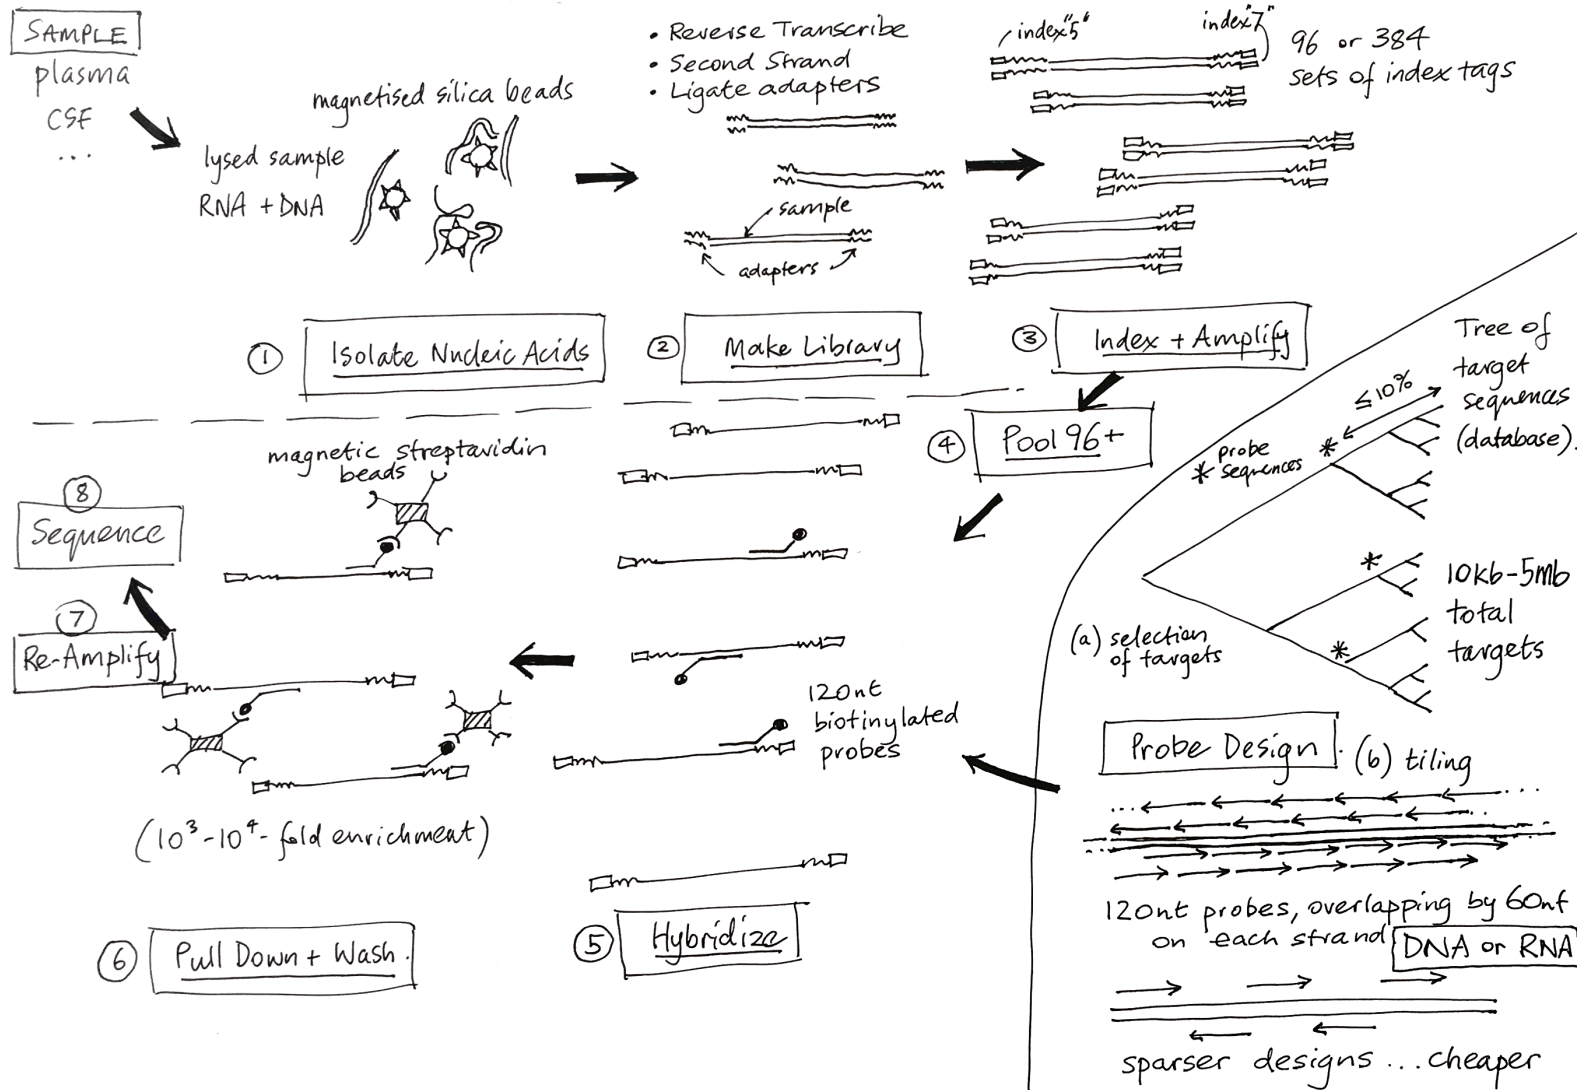 SAMPLE
plasma
CSF
...
lysed sample
RNA + DNA
magnetised silica beads
• Reverse Transcribe
• Second Strand
• Ligate adapters
sample
adapters
index "5"
index "7"
96 or 384
sets of index tags
① Isolate Nucleic Acids
② Make Library
③ Index + Amplify
④ Pool 96+
magnetic streptavidin
beads
⑧
Sequence
⑦
Re-Amplify
(10³-10⁴-fold enrichment)
⑥ Pull Down + Wash.
120nt
biotinylated
probes
⑤ Hybridize
Tree of
target
sequences
(database).
≤10%
* probe
sequences
*
*
*
10kb-5mb
total
targets
(a) selection
of targets
Probe Design. (b) tiling
...
...
120nt probes, overlapping by 60nt
on each strand
DNA or RNA
sparser designs ... cheaper